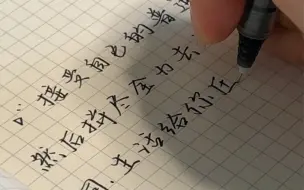 "接受自己的普通
然后拼尽全力去
生活给你压